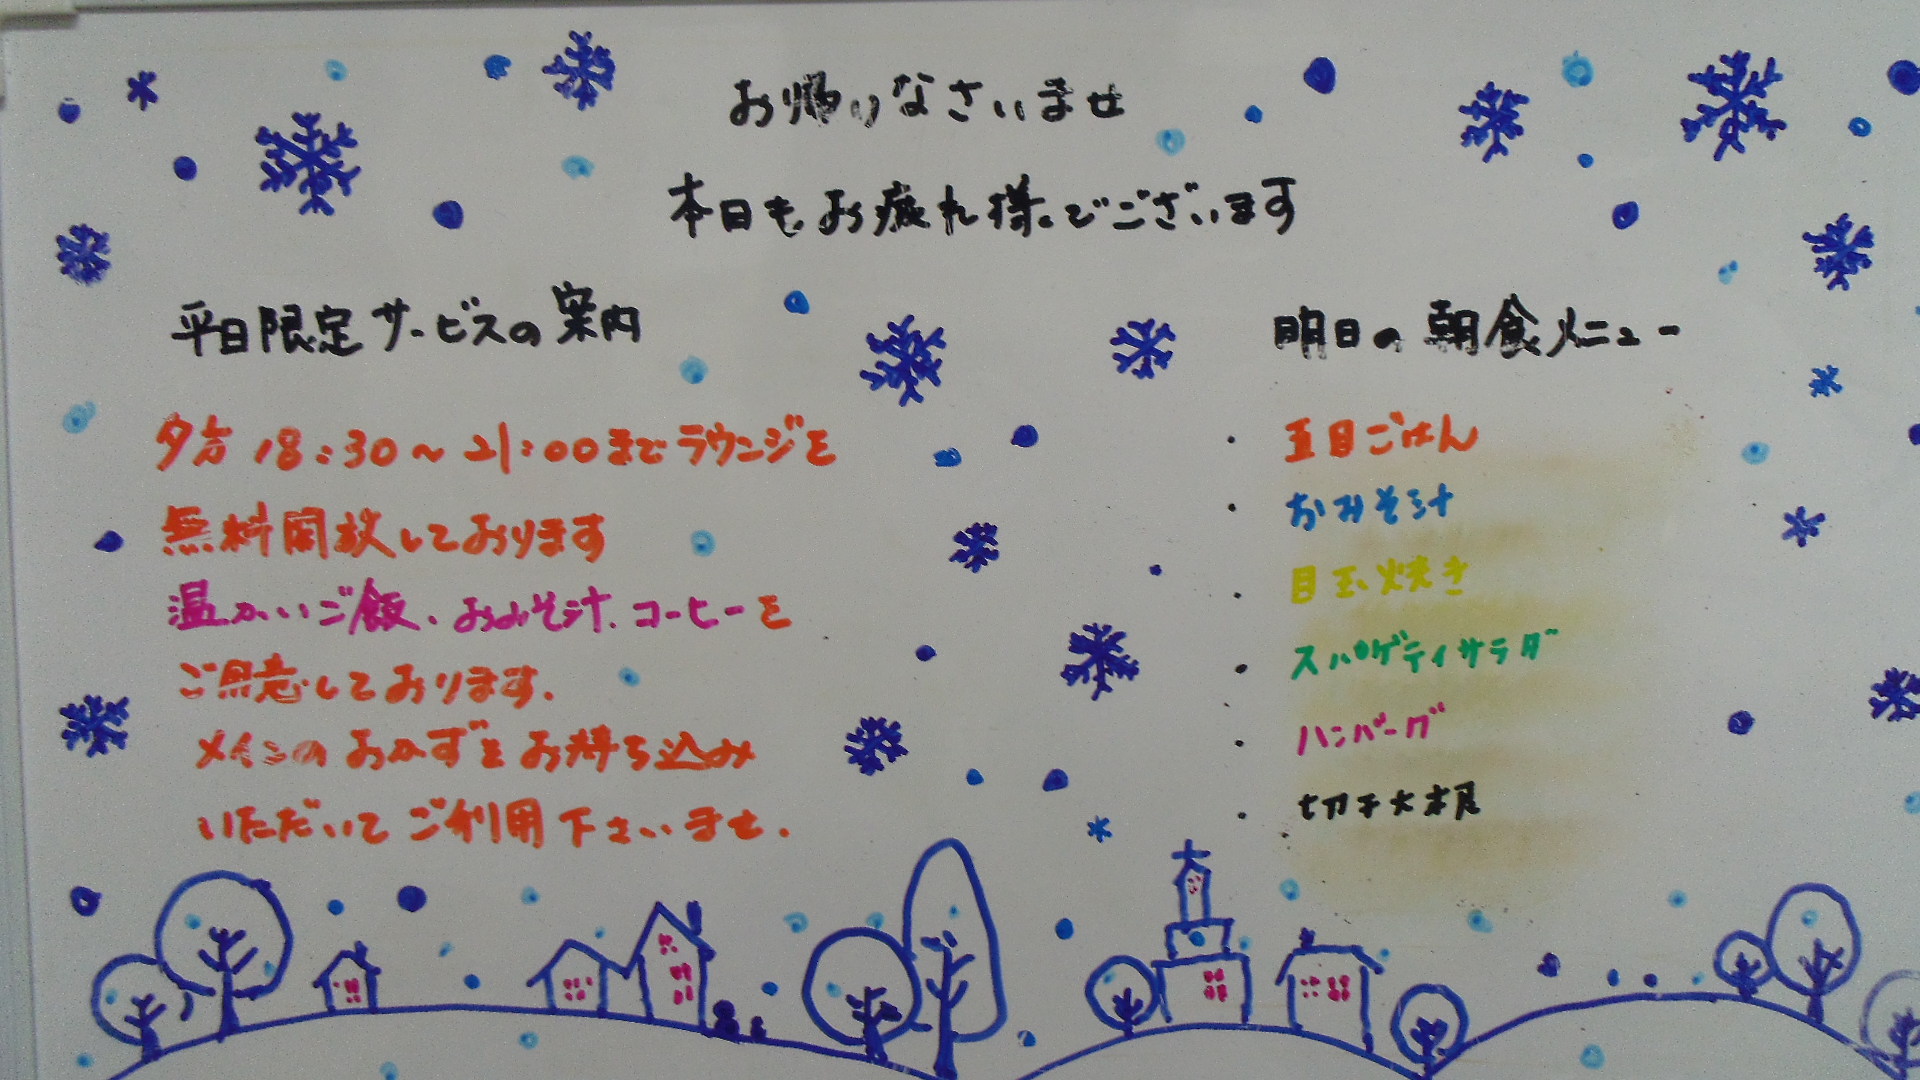 お帰りなさいませ
本日もお疲れ様でございます
平日限定サービスの案内
夕方 18:30～21:00までラウンジを
無料開放しております
温かいご飯、おみそ汁、コーヒーを
ご用意しております。
メインのおかずをお持ち込み
いただいてご利用下さいませ。
明日の朝食メニュー
・五目ごはん
・おみそ汁
・目玉焼き
・スパゲティサラダ
・ハンバーグ
・切干大根